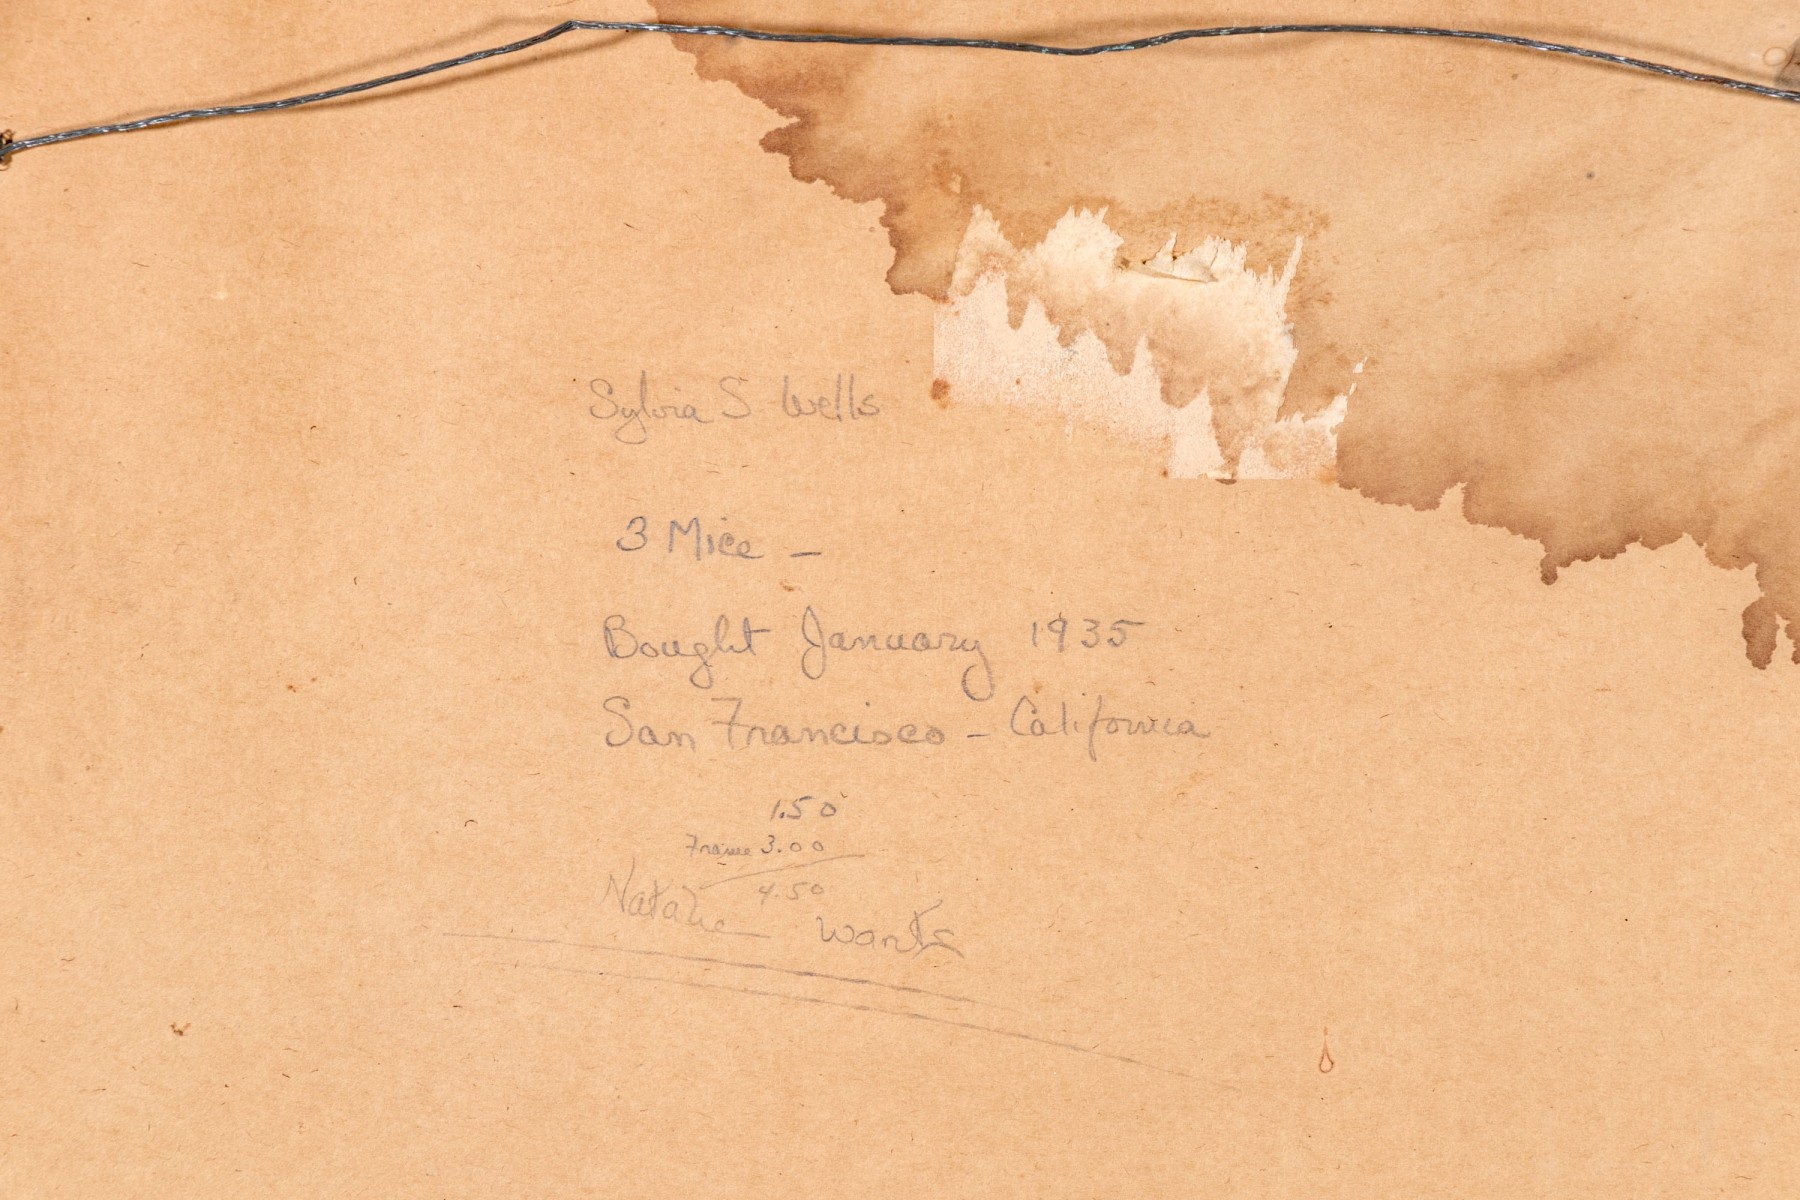 Sylvia S Wells
3 Mice –
Bought January 1935
San Francisco – California
1.50
Frame 3.00
4.50
Natalie wants